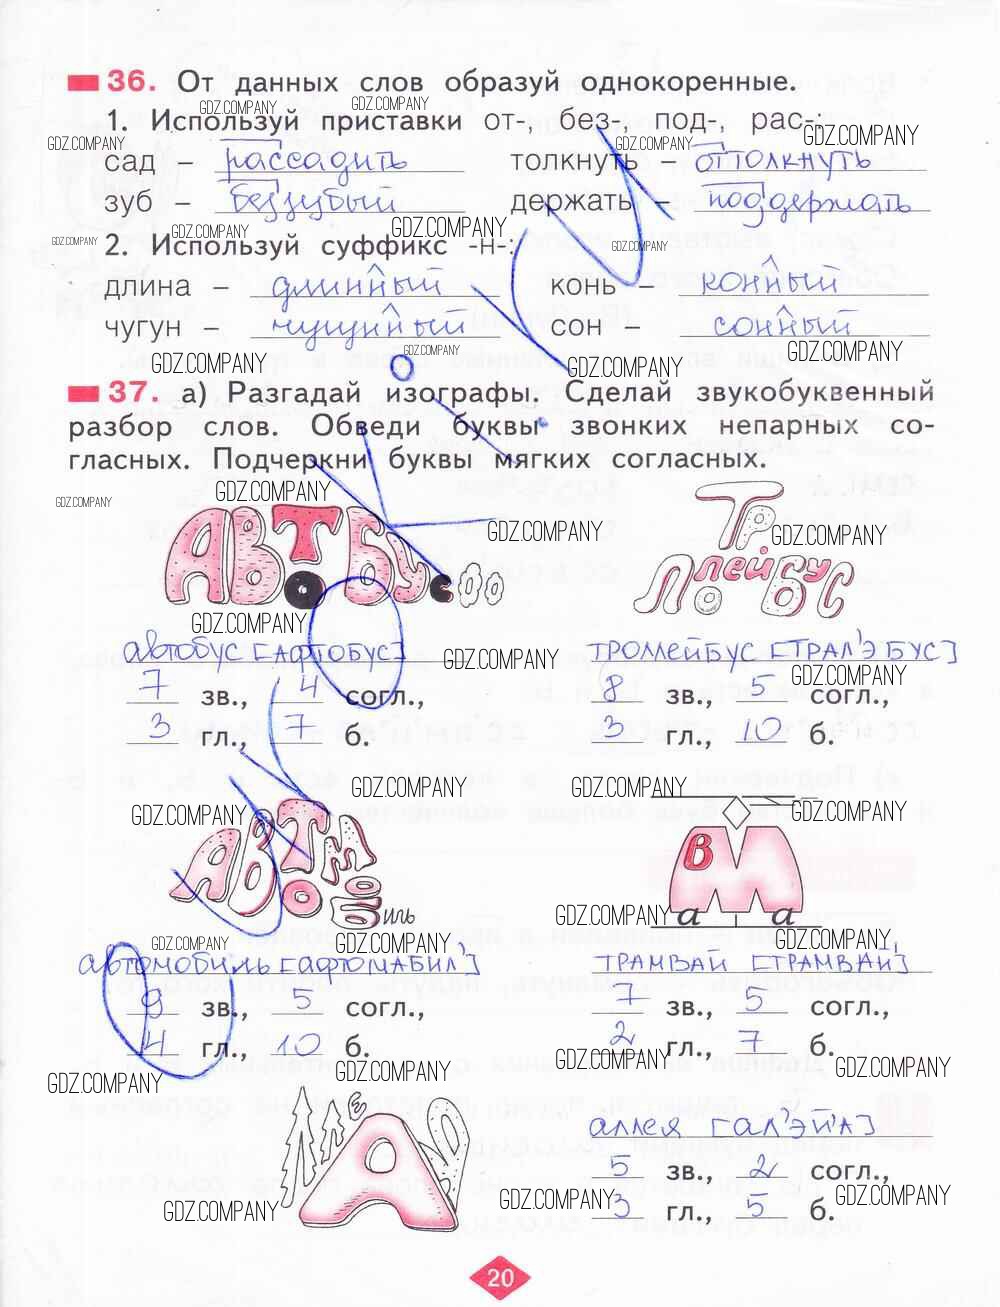 36. От данных слов образуй однокоренные.
1. Используй приставки от-, без-, под-, рас-:
сад – рассадить толкнуть – оттолкнуть
зуб – беззубый держать – поддержать
2. Используй суффикс -н-:
длина – длинный конь – конный
чугун – чугунный сон – сонный
37. а) Разгадай изографы. Сделай звукобуквенный
разбор слов. Обведи буквы звонких непарных со-
гласных. Подчеркни буквы мягких согласных.
АВТОБУС ТРОЛЛЕЙБУС
автобус [АФТОБУС] ТРОЛЛЕЙБУС [ТРАЛ'ЭБУС]
7 зв., 4 согл., 8 зв., 5 согл.,
3 гл., 7 б. 3 гл., 10 б.
АВТОМОБиль
в М а а
автомобиль [АФТОМАБИЛ'] ТРАМВАЙ [ТРАМВАЙ']
9 зв., 5 согл., 7 зв., 5 согл.,
4 гл., 10 б. 2 гл., 7 б.
аллея [АЛ'ЭЙ'А]
5 зв., 2 согл.,
3 гл., 5 б.
20
GDZ.COMPANY